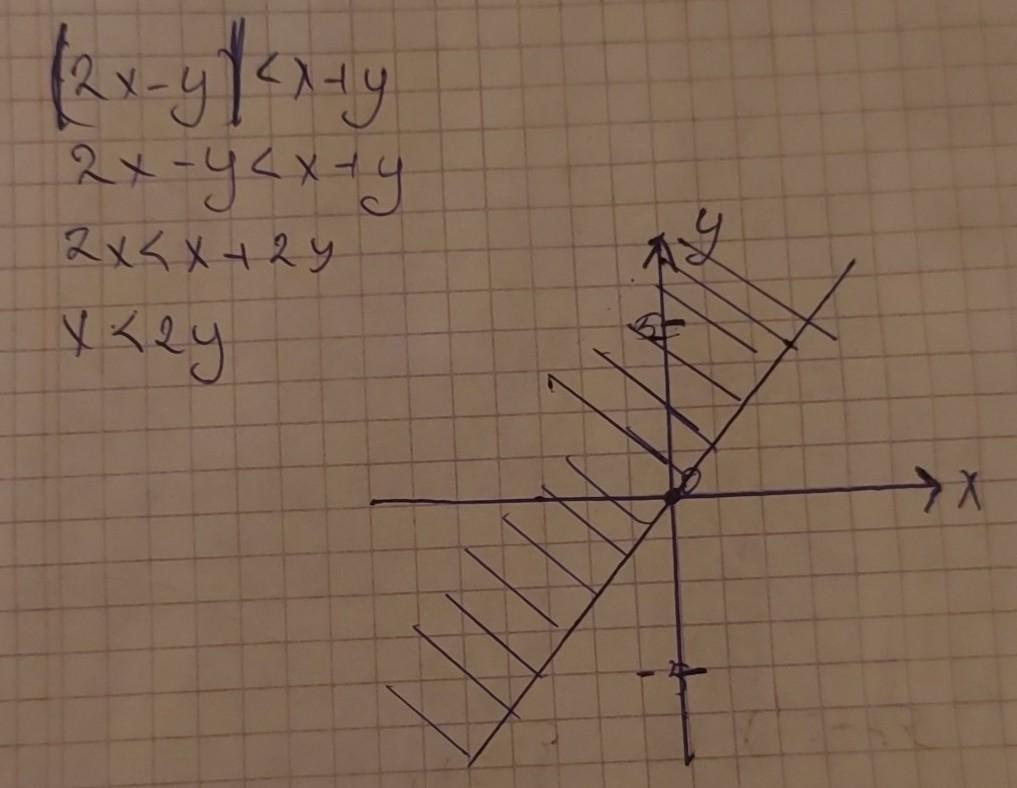 |2x-y|<x+y
2x-y<x+y
2x<x+2y
x<2y
y
5
0
x